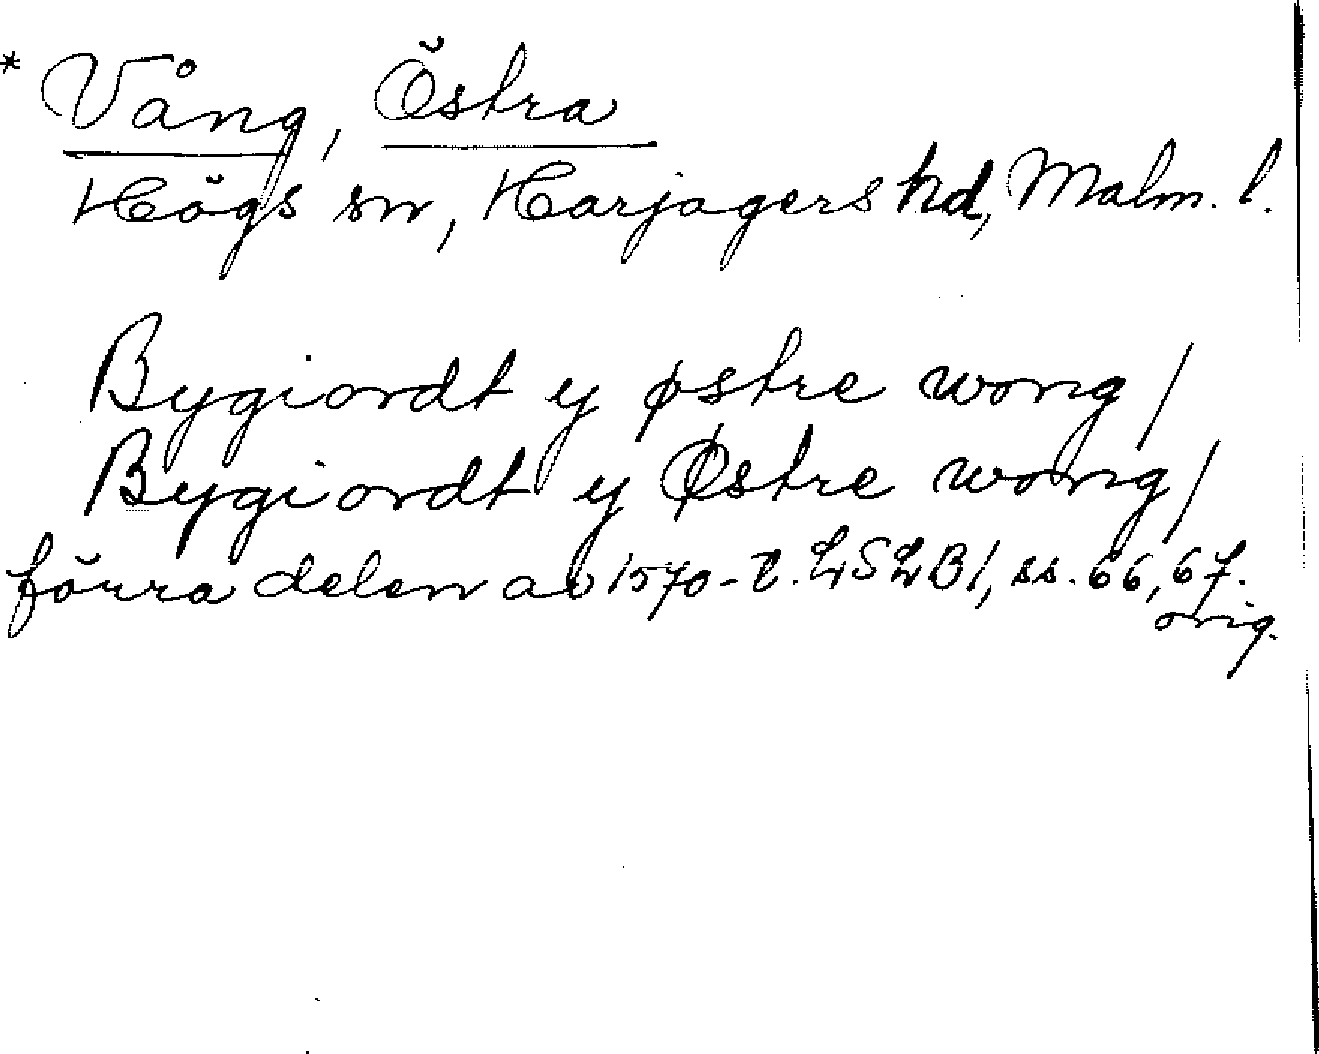 * Vång, Östra
Högs sn, Harjagers hd, Malm. l.
Bygiordt y østre wong /
Bygiordt y Østre wong /
förra delen av 1570-t. LSLB 1, ss. 66, 67.
orig.